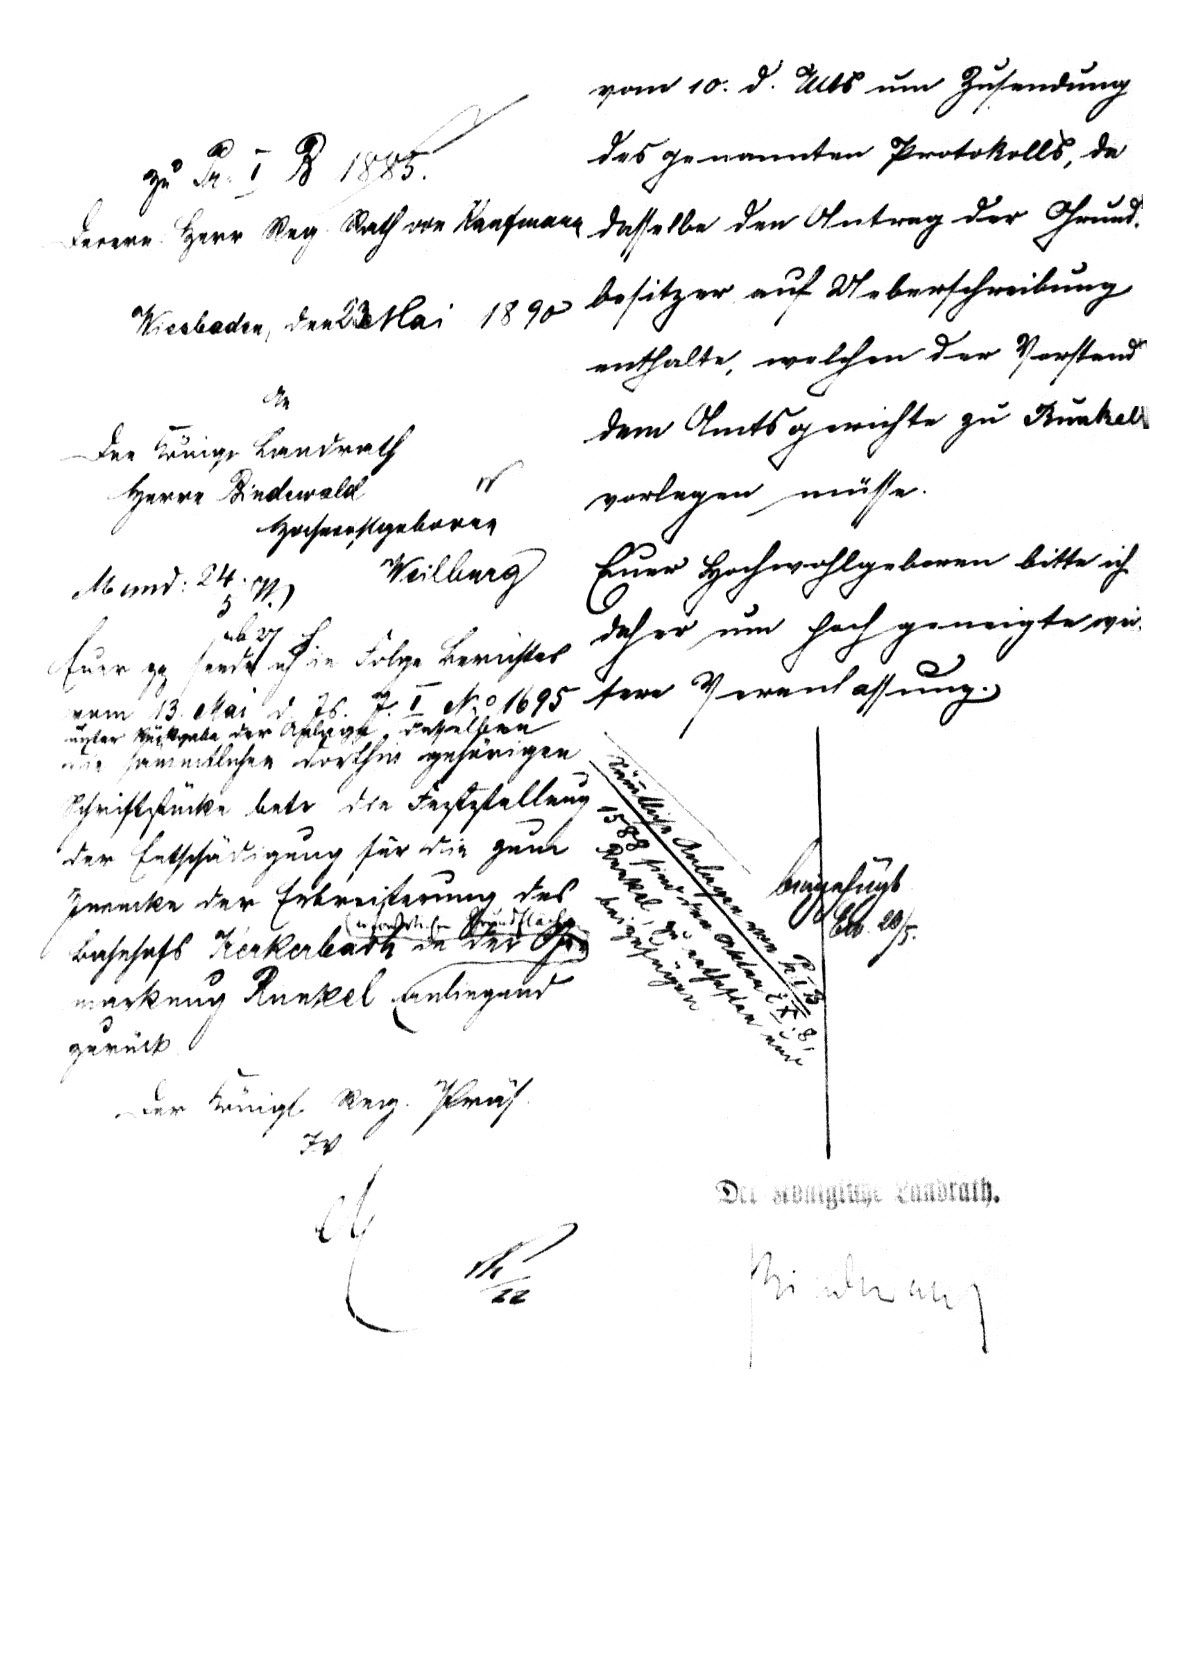 zu Pr. I B 1885.
Herrn Reg. Rath von Kaufmann
Wiesbaden, den 23 Mai 1890
An
den Königl Landrath
Herrn Bindewald
Hochwohlgeboren
Weilburg
Mund: 24/5
Euer pp sende ich in Folge Berichtes
vom 13. Mai d. Js. J. I No 1695
unter Rückgabe der Anlage desselben
die sämmtlichen dorthin gehörigen
Schriftstücke betr die Feststellung
der Entschädigung für die zum
Zwecke der Erbreiterung des
erforderlichen Grundfläche
Bahnhofs Kerkerbach in der Ge
markung Runkel anliegend
zurück
Der Königl. Reg. Präs.
IV
22
vom 10. d. Mts um Zusendung
des genannten Protokolls, da
dasselbe den Antrag der Grund-
besitzer auf Ueberschreibung
enthalte, welchen der Vorstand
dem Amtsgerichte zu Runkel
vorlegen müsse.
Euer Hochwohlgeboren bitte ich
daher um hoch geneigte wei-
tere Veranlassung.
Sämmtliche Anlagen von Pr I B
1588 sind den Akten 8,
Runkel, zu entheften und
beizufügen
beigefügt
20/5.
Der Königliche Landrath.
Bindewald